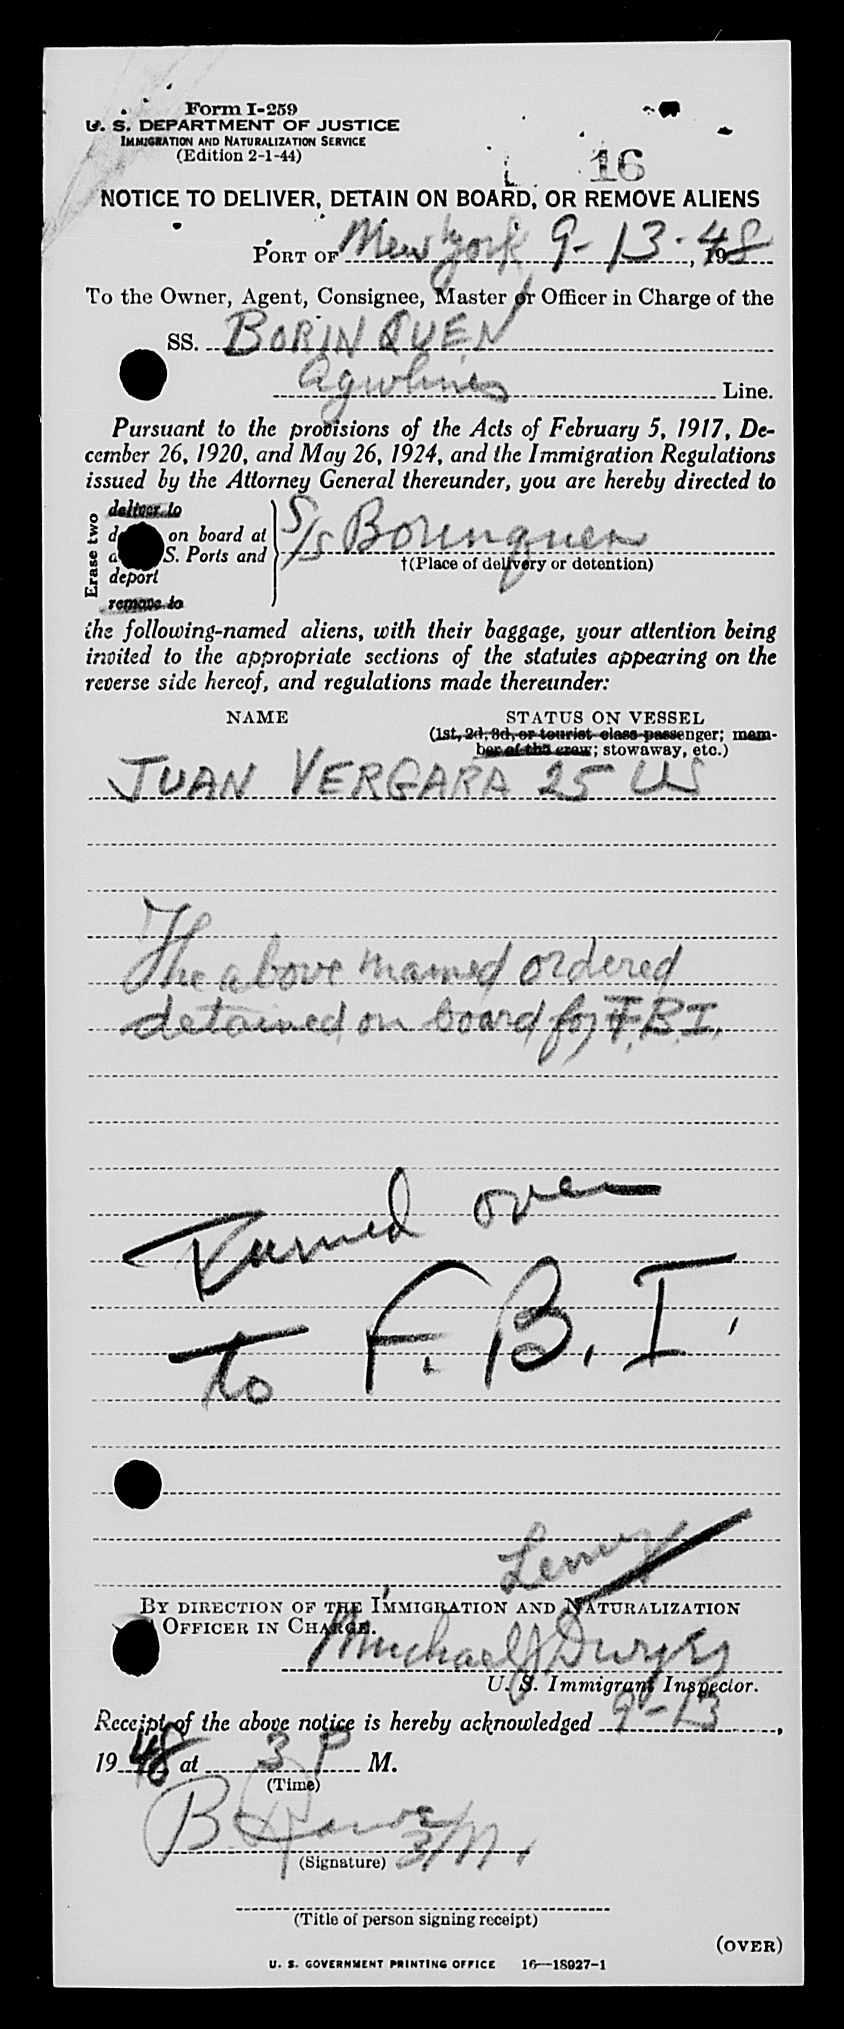 Form I-259
U. S. DEPARTMENT OF JUSTICE
IMMIGRATION AND NATURALIZATION SERVICE
(Edition 2-1-44)
16
NOTICE TO DELIVER, DETAIN ON BOARD, OR REMOVE ALIENS
PORT OF New York 9-13-48, 19
To the Owner, Agent, Consignee, Master or Officer in Charge of the
SS. BORINQUEN
Agwilines Line.
Pursuant to the provisions of the Acts of February 5, 1917, De-
cember 26, 1920, and May 26, 1924, and the Immigration Regulations
issued by the Attorney General thereunder, you are hereby directed to
Erase two
deliver to
on board at
S. Ports and
deport
remove to
S/S Borinquen
†(Place of delivery or detention)
the following-named aliens, with their baggage, your attention being
invited to the appropriate sections of the statutes appearing on the
reverse side hereof, and regulations made thereunder:
NAME STATUS ON VESSEL
(1st, 2d, 3d, or tourist class passenger; mem-
ber of the crew; stowaway, etc.)
JUAN VERGARA 25 US
The above named ordered
detained on board for F.B.I.
Turned over
to F.B.I.
BY DIRECTION OF THE IMMIGRATION AND NATURALIZATION
OFFICER IN CHARGE.
Michael J Dwyer
U. S. Immigrant Inspector.
Receipt of the above notice is hereby acknowledged 9-13,
1948 at 3 P M.
(Time)
(Signature)
(Title of person signing receipt)
(OVER)
U. S. GOVERNMENT PRINTING OFFICE 16—18927-1